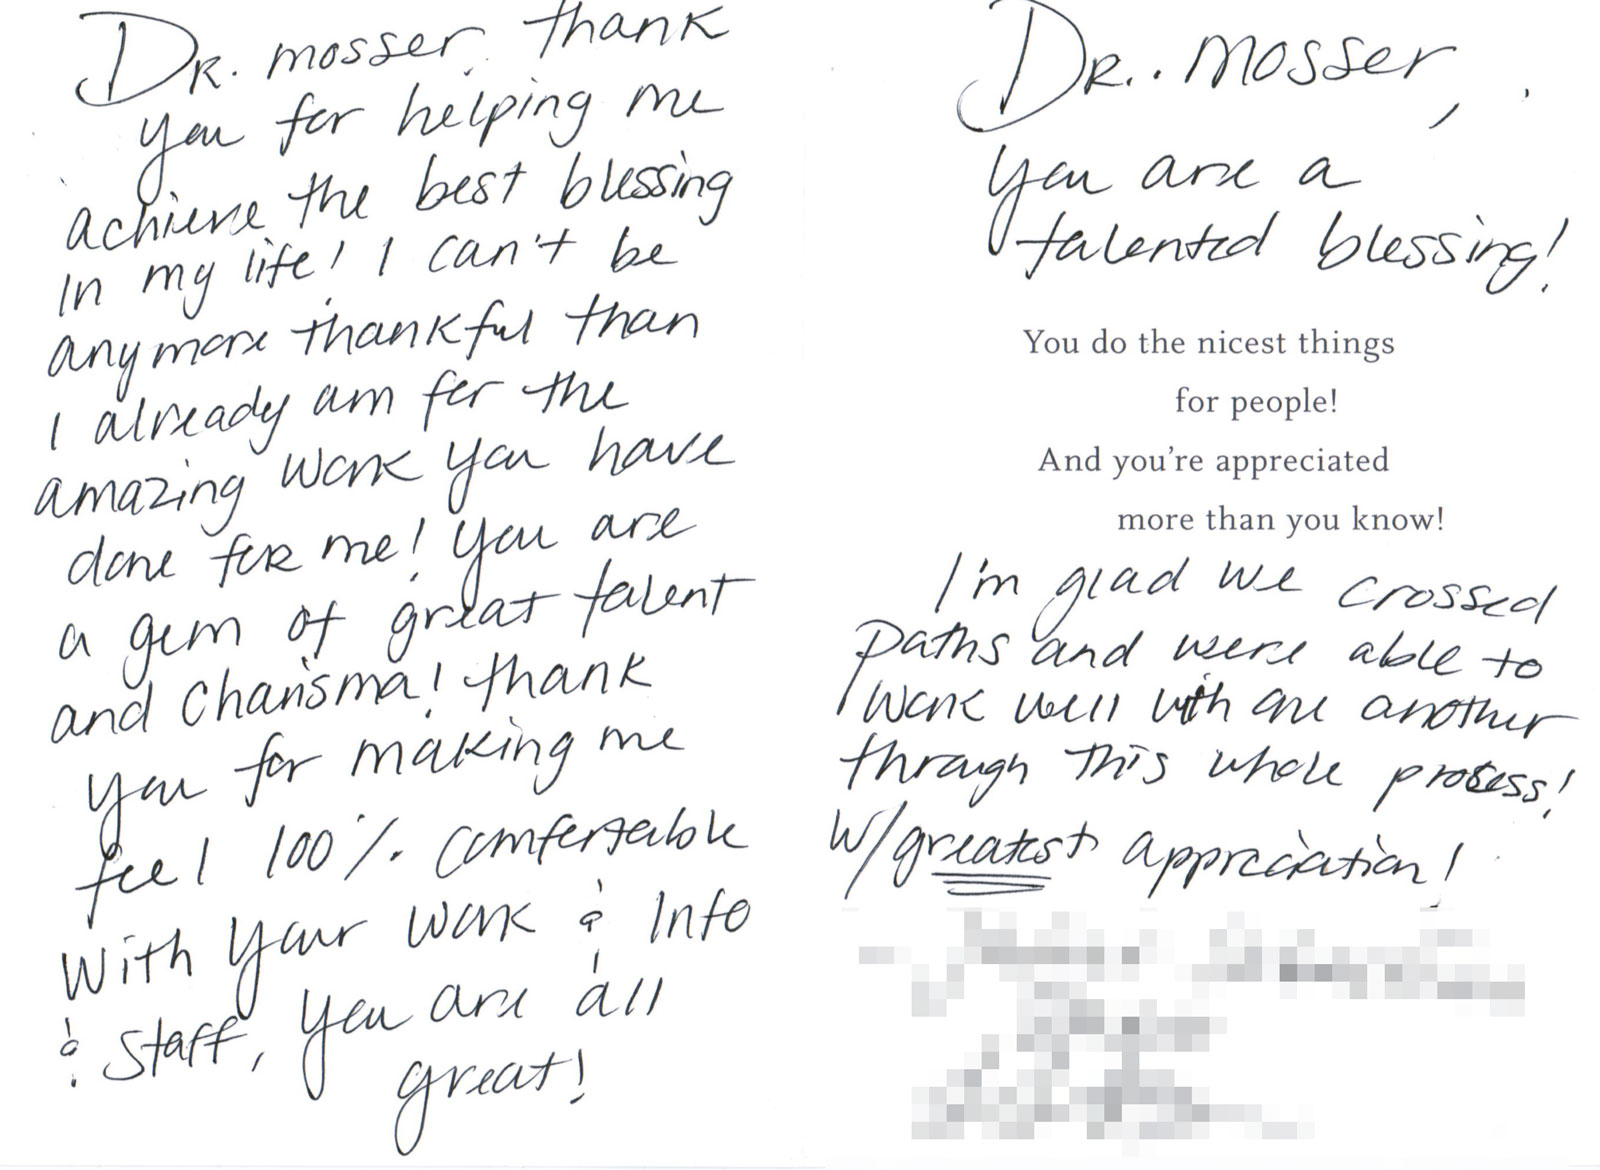 Dr. mosser, thank
you for helping me
achieve the best blessing
In my life! I can't be
anymore thankful than
I already am for the
amazing work you have
done for me! You are
a gem of great talent
and charisma! thank
you for making me
feel 100%. comfortable
With your work & Info
& Staff, you are all
great!
Dr.. Mosser,
you are a
talented blessing!
You do the nicest things
for people!
And you're appreciated
more than you know!
I'm glad we crossed
paths and were able to
work well with one another
through this whole process!
W/greatest appreciation!